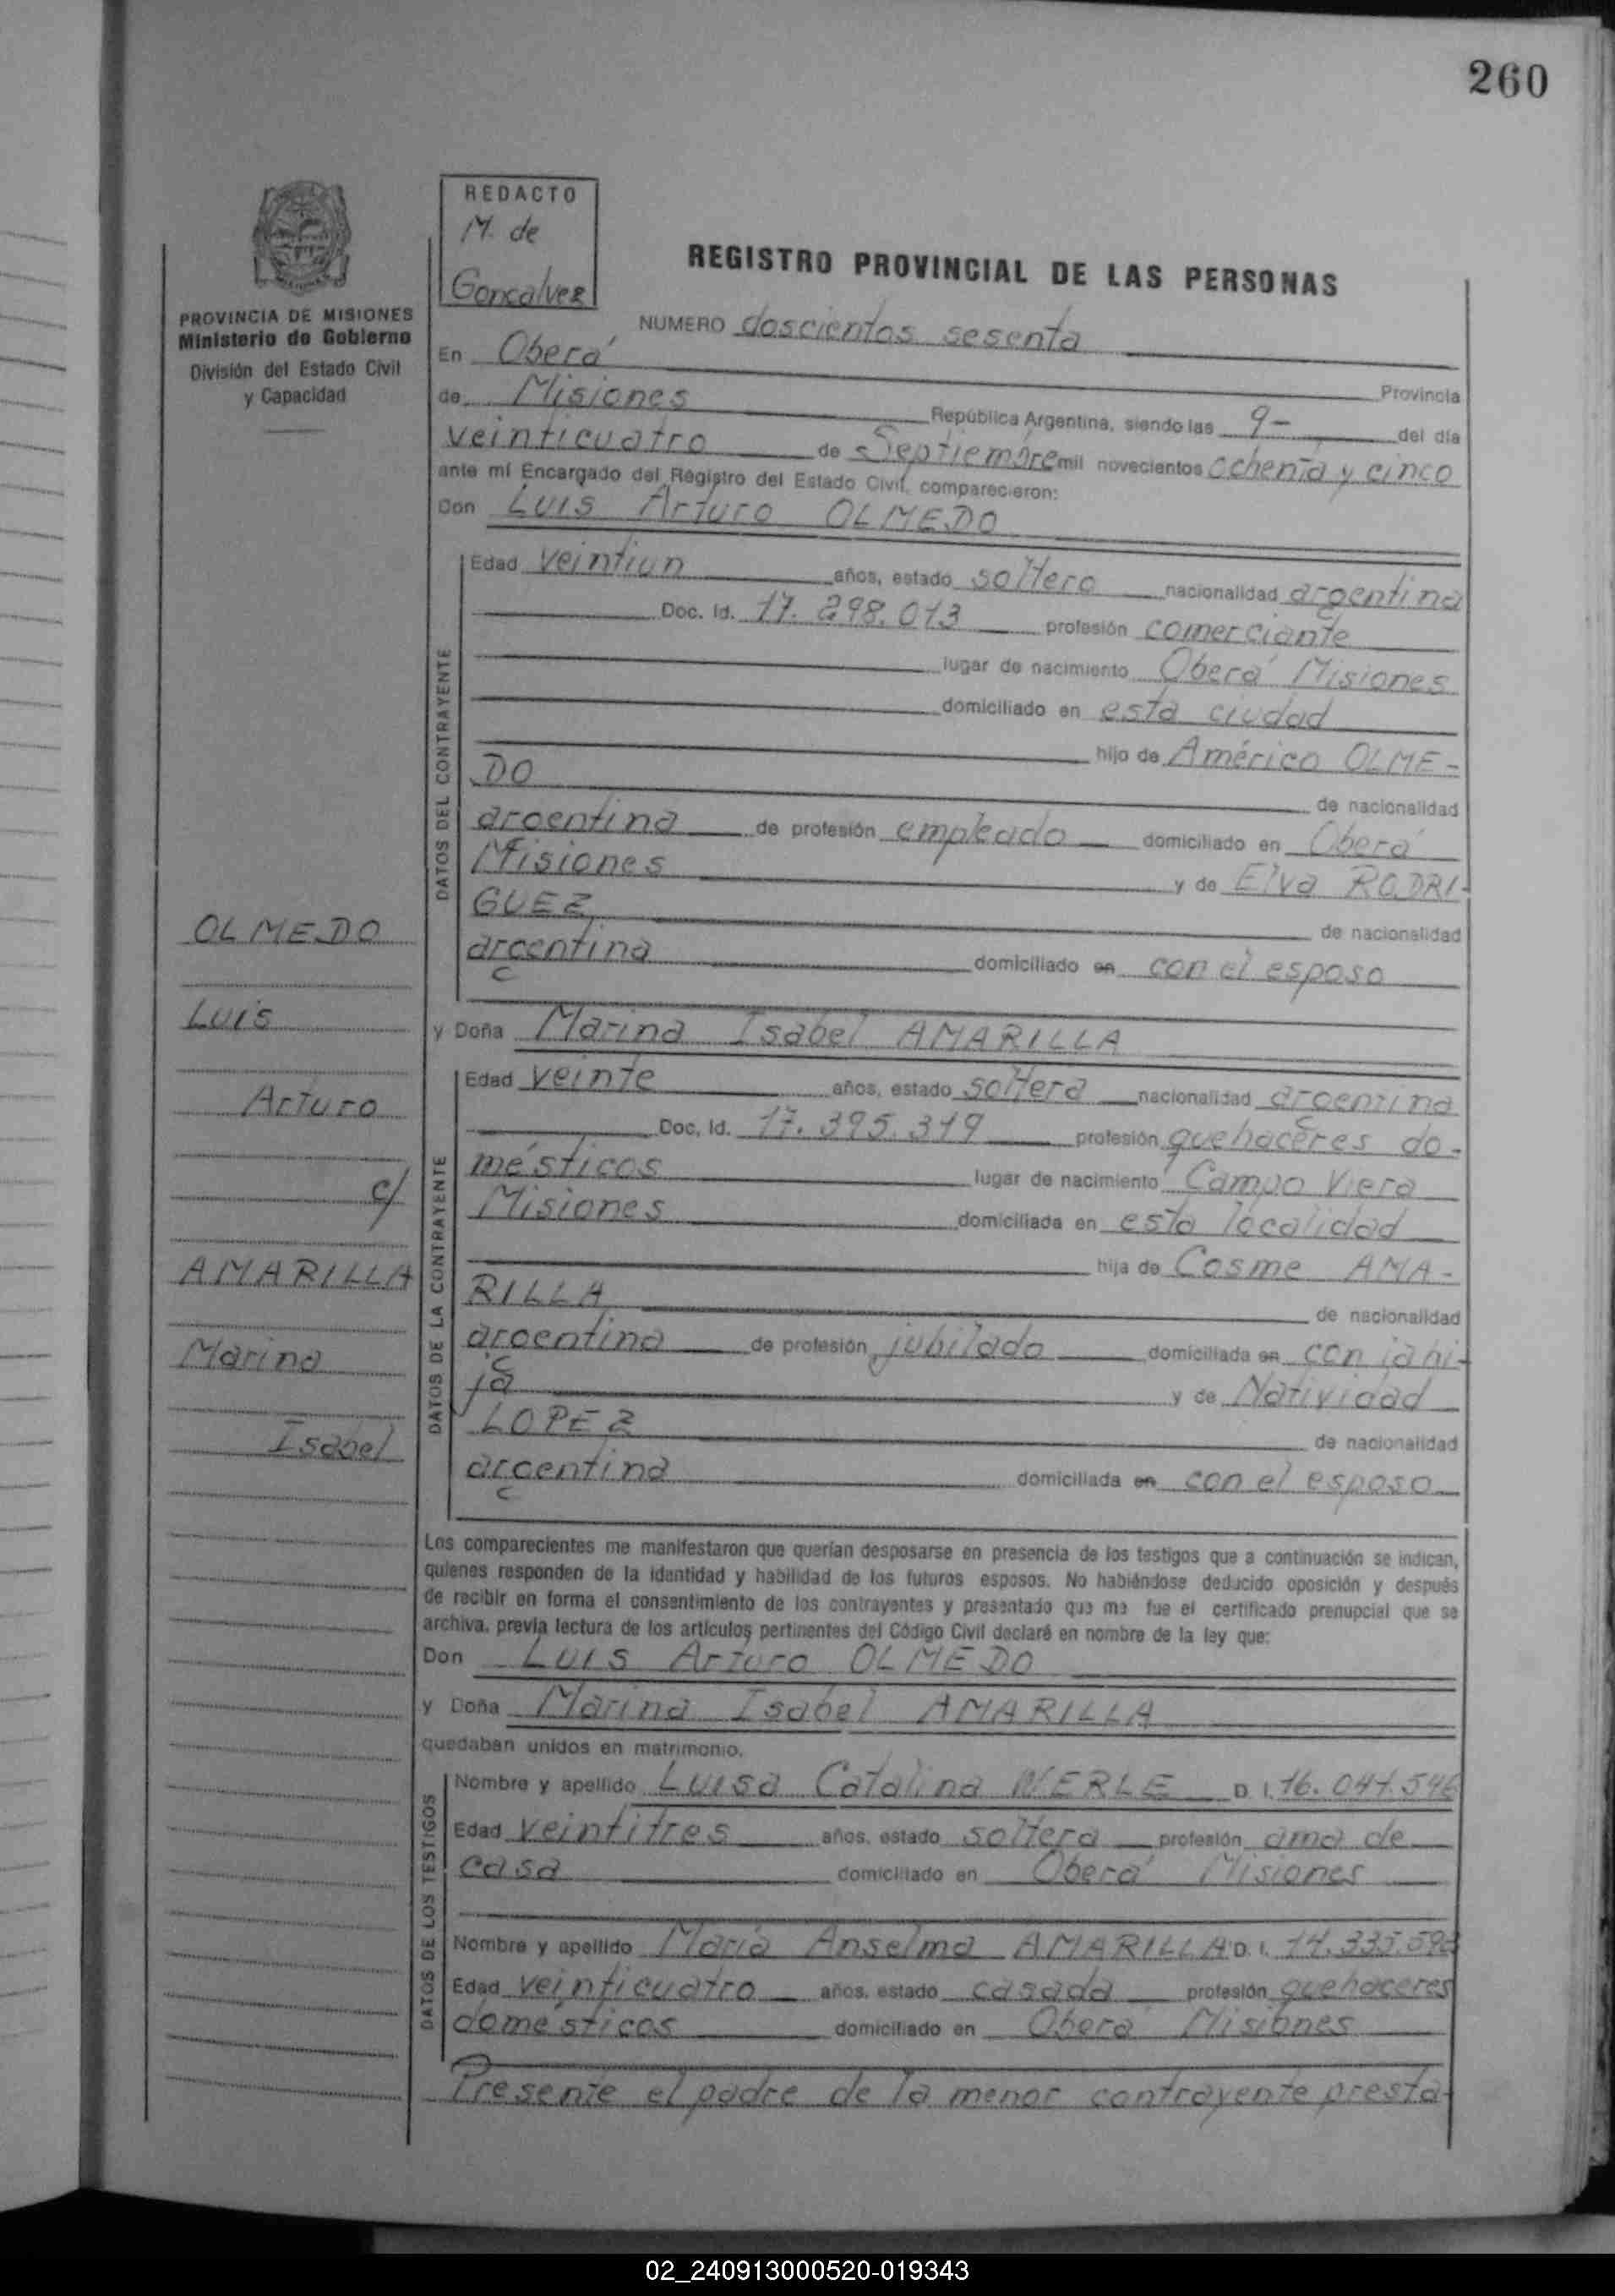 260
REDACTO
M. de
Goncalvez
REGISTRO PROVINCIAL DE LAS PERSONAS
PROVINCIA DE MISIONES
Ministerio de Gobierno
División del Estado Civil
y Capacidad
NUMERO doscientos sesenta
En Oberá Provincia
de Misiones República Argentina, siendo las 9- del día
veinticuatro de Septiembre mil novecientos ochenta y cinco
ante mí Encargado del Registro del Estado Civil, comparecieron:
Don Luis Arturo OLMEDO
DATOS DEL CONTRAYENTE
Edad veintiun años, estado soltero nacionalidad argentina
Doc. Id. 17.298.013 profesión comerciante
lugar de nacimiento Oberá Misiones
domiciliado en esta ciudad
hijo de Américo OLME-
DO de nacionalidad
argentina de profesión empleado domiciliado en Oberá
Misiones y de Elva RODRI-
GUEZ de nacionalidad
argentina domiciliado en con el esposo
y Doña Marina Isabel AMARILLA
DATOS DE LA CONTRAYENTE
Edad veinte años, estado soltera nacionalidad argentina
Doc. Id. 17.395.319 profesión quehaceres do-
mésticos lugar de nacimiento Campo Viera
Misiones domiciliada en esta localidad
hija de Cosme AMA-
RILLA de nacionalidad
argentina de profesión jubilado domiciliada en con la hi-
ja y de Natividad
LOPEZ de nacionalidad
argentina domiciliada en con el esposo
OLMEDO
Luis
Arturo
c/
AMARILLA
Marina
Isabel
Los comparecientes me manifestaron que querían desposarse en presencia de los testigos que a continuación se indican,
quienes responden de la identidad y habilidad de los futuros esposos. No habiéndose deducido oposición y después
de recibir en forma el consentimiento de los contrayentes y presentado que me fue el certificado prenupcial que se
archiva, previa lectura de los artículos pertinentes del Código Civil declaré en nombre de la ley que:
Don Luis Arturo OLMEDO
y Doña Marina Isabel AMARILLA
quedaban unidos en matrimonio.
DATOS DE LOS TESTIGOS
Nombre y apellido Luisa Catalina WERLE D. I. 16.047.546
Edad veintitres años, estado soltera profesión ama de
casa domiciliado en Oberá Misiones
Nombre y apellido María Anselma AMARILLA D. I.
Edad veinticuatro años, estado casada profesión quehaceres
domésticos domiciliado en Oberá Misiones
Presente el padre de la menor contrayente presta-
02_240913000520-019343